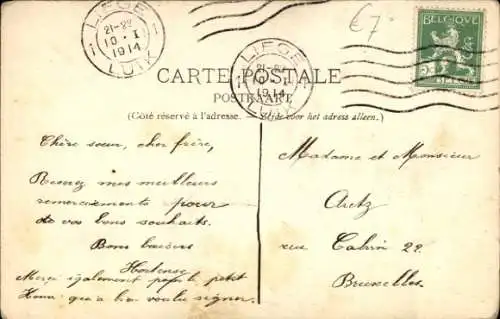 LIEGE
21-22
10 · I
1914
LUIK
LIEGE
21-22
10 · I
1914
LUIK
€7
BELGIQUE
CARTE POSTALE
POSTKAART
(Côté réservé à l'adresse. Zijde voor het adress alleen.)
Chère sœur, cher frère,
Recevez mes meilleurs
remerciements pour
de vos bons souhaits.
Bons baisers
Hortense
Merci également pour le petit
qui a bien voulu signer.
Madame et Monsieur
Aretz
rue Cahin 22.
Bruxelles.